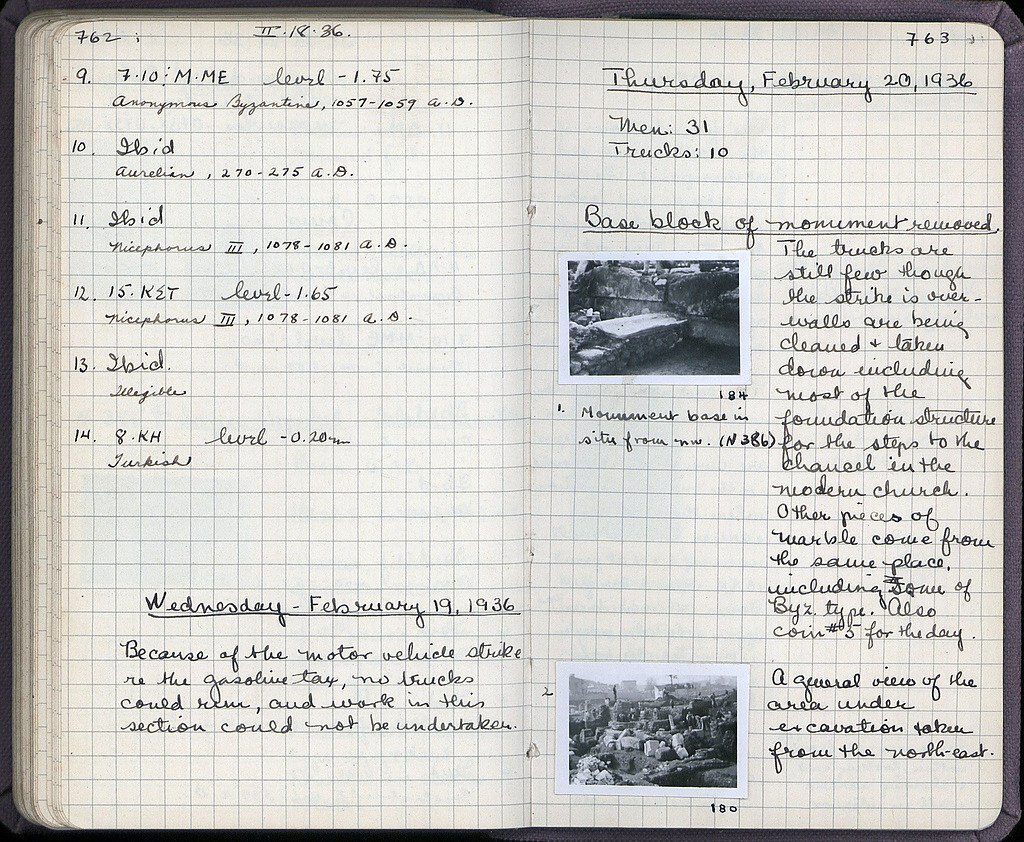 762 ;
II·18·36.
9. 7·10: M·ME level -1.75
Anonymous Byzantine, 1057-1059 A.D.
10. Ibid
Aurelian, 270-275 A.D.
11. Ibid
Nicephorus III, 1078-1081 A.D.
12. 15·KST level -1.65
Nicephorus III, 1078-1081 A.D.
13. Ibid.
Illegible
14. 8·KH level -0.20m
Turkish
Wednesday - February 19, 1936
Because of the motor vehicle strike
re the gasoline tax, no trucks
could run, and work in this
section could not be undertaken.
763
Thursday, February 20, 1936
Men: 31
Trucks: 10
Base block of monument removed.
The trucks are
still few though
the strike is over-
walls are being
cleaned + taken
down including
most of the
foundation structure
for the steps to the
chancel in the
modern church.
Other pieces of
marble come from
the same place,
including some of
Byz. type. Also
coin #5 for the day.
184
1. Monument base in
situ from nw. (N386)
2
A general view of the
area under
excavation taken
from the north-east.
180